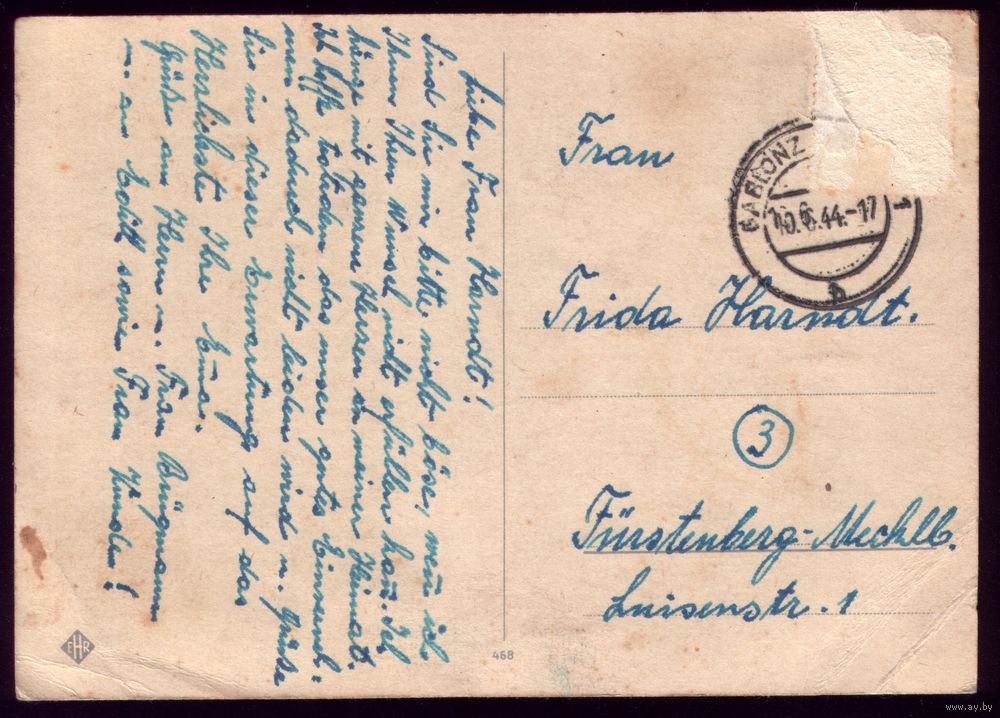 Liebe Frau Harndt!
Sind Sie mir bitte nicht böse, weñ ich
Ihnen Ihren Wunsch nicht erfüllen kañ. Ich
hänge mit ganzem Herzen an meiner Heimat.
Ich hoffe trotzdem das unser gutes Einverneh-
men dadurch nicht leiden wird u. Grüße
Sie in dieser Erwartung auf das
Herzlichste Ihre
Grüße an Herrn u. Frau Brügmann
u. an Edith sowie Frau
EHR
468
Frau
GABLONZ
10.6.44.-17
b
1
Frida Harndt.
3
Fürstenberg-Mecklb.
Luisenstr. 1
www.ay.by